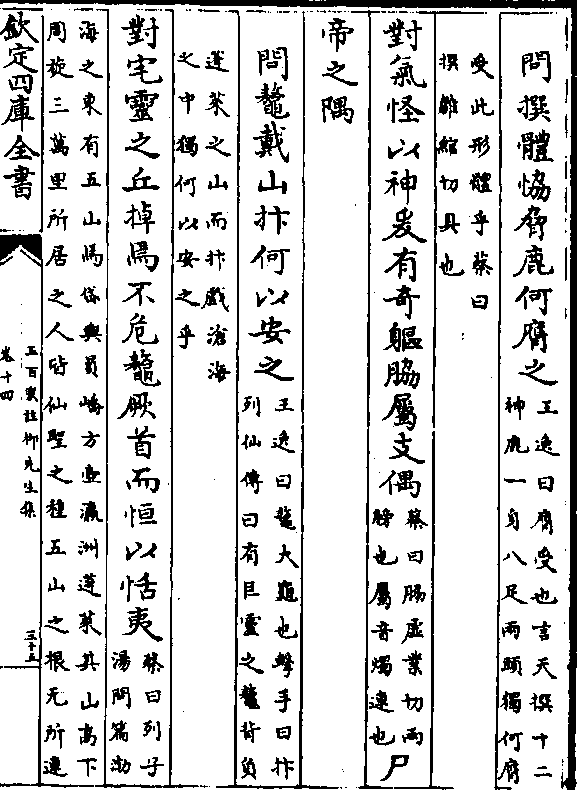 問撰體恊脅鹿何膺之王逸曰膺受也言天撰十二
神鹿一身八足兩頭獨何膺
受此形體乎蔡曰
撰雛綰切具也
對氣怪以神爰有奇軀脇屬支偶蔡曰脇虛業切兩
膀也屬音燭連也尸
帝之隅
問鼇戴山抃何以安之王逸曰鼇大龜也擊手曰抃
列仙傳曰有巨靈之鼇背負
蓬萊之山而抃戲滄海
之中獨何以安之乎
對宅靈之丘掉焉不危鼇厥首而恒以恬夷蔡曰列子
湯問篇渤
海之東有五山焉岱輿員嶠方壺瀛洲蓬萊其山高下
周旋三萬里所居之人皆仙聖之種五山之根无所連
欽定四庫全書
五百家註栁先生集
卷十四
三十五